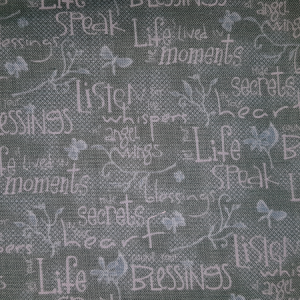 Life
speak
Life
lived in
moments
angel
wings
blessings
Listen
whispers
angel
wings
secrets
heart
Blessings
Life
speak
Life
lived in
moments
blessings
secrets
heart
Listen
Life
Blessings